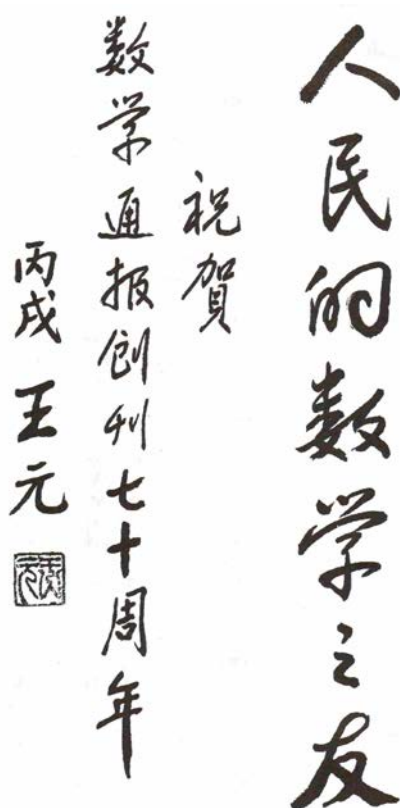 人民的数学之友
祝賀
数学通报创刊七十周年
丙戌 王元